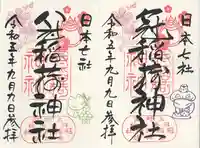 日本七社
冠稲荷神社
令和五年九月九日参拝
日本七社
稲荷神社
令和五年九月九日参拝